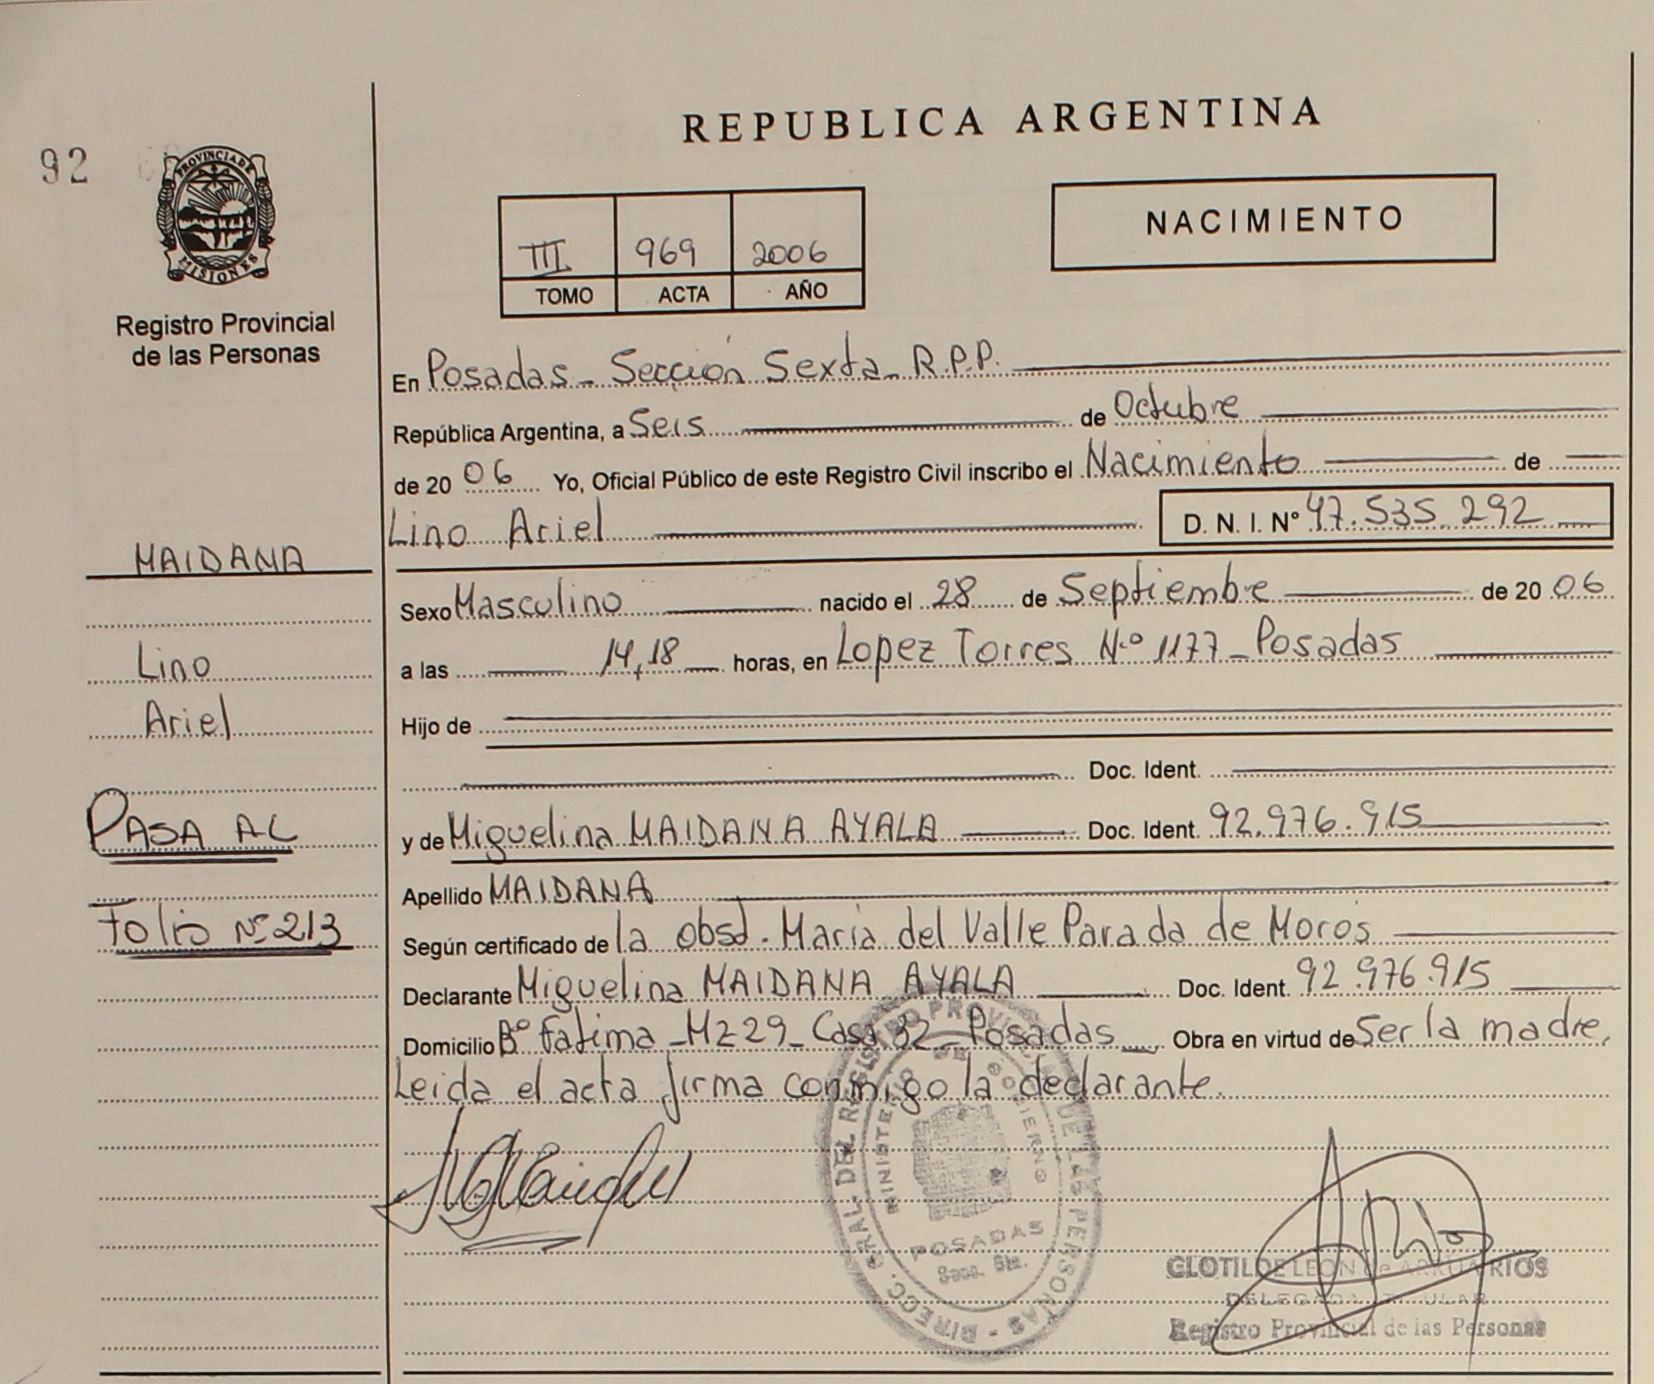 REPUBLICA ARGENTINA
92
PROVINCIA DE
MISIONES
Registro Provincial
de las Personas
III 969 2006
TOMO ACTA AÑO
NACIMIENTO
En Posadas_ Sección Sexta_ R.P.P.
República Argentina, a Seis de Octubre
de 2006 Yo, Oficial Público de este Registro Civil inscribo el Nacimiento de
Lino Ariel D. N. I. N° 47.535.292
MAIDANA
Lino
Ariel
PASA AL
Folio Nº 213
Sexo Masculino nacido el 28 de Septiembre de 2006
a las 14,18 horas, en Lopez Torres N.º 1177_ Posadas
Hijo de
Doc. Ident.
y de Miguelina MAIDANA AYALA Doc. Ident. 92.976.915
Apellido MAIDANA
Según certificado de la obsd. Maria del Valle Parada de Moros
Declarante Miguelina MAIDANA AYALA Doc. Ident. 92.976.915
Domicilio Bº Fatima_Mz 29_Casa 32_Posadas Obra en virtud de Ser la madre,
Leida el acta firma conmigo la declarante.
DIREC. GRAL. DEL REGISTRO PROVINCIAL DE LAS PERSONAS
MINISTERIO DE GOBIERNO
POSADAS
Secc. 6ta.
CLOTILDE LEON de ARRUA RIOS
DELEGADA TITULAR
Registro Provincial de las Personas